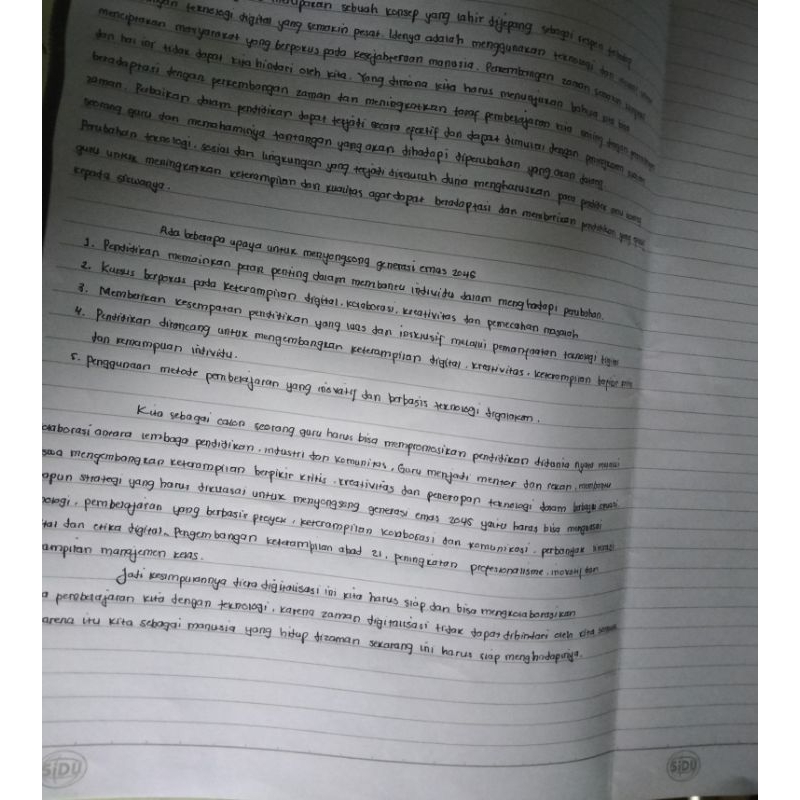 merupakan sebuah konsep yang lahir dijepang sebagai respon terhadap
teknologi digital yang semakin pesat. Idenya adalah menggunakan teknologi
menciptakan masyarakat yang berpokus pada kesejahteraan manusia. Perkembangan zaman semakin
dan hal ini tidak dapat kita hindari oleh kita. Yang dimana kita harus menunjukan bahwa kita bisa
beradaptasi dengan perkembangan zaman dan meningkatkan taraf pembelajaran kita seiring dengan
zaman. Perbaikan dalam pendidikan dapat terjadi secara efektif dan dapat dimulai dengan
seorang guru dan memahaminya tantangan yang akan dihadapi diperubahan yang akan datang
Perubahan teknologi, sosial dan lingkungan yang terjadi diseluruh dunia mengharuskan para
guru untuk meningkatkan keterampilan dan kualitas agar dapat beradaptasi dan memberikan pendidikan yang
kepada siswanya.
Ada beberapa upaya untuk menyongsong generasi emas 2045
1. Pendidikan memainkan peran penting dalam membantu individu dalam menghadapi perubahan.
2. Kursus berpokus pada keterampilan digital, kolaborasi, kreativitas dan pemecahan masalah
3. Memberikan kesempatan pendidikan yang luas dan inklusif melalui pemanfaatan teknologi
4. Pendidikan dirancang untuk mengembangkan keterampilan digital, kreativitas, keterampilan
dan kemampuan individu.
5. Penggunaan metode pembelajaran yang inovatif dan berbasis teknologi digalakan.
Kita sebagai calon seorang guru harus bisa mempromosikan pendidikan didunia nyata melalui
kolaborasi antara lembaga pendidikan, industri dan komunitas, Guru menjadi mentor dan rekan, membantu
mengembangkan keterampilan berpikir kritis, kreativitas dan penerapan teknologi dalam
strategi yang harus dikuasai untuk menyongsong generasi emas 2045 yaitu harus bisa menguasai
pembelajaran yang berbasis proyek, keterampilan kolaborasi dan komunikasi, perbanyak literasi
dan etika digital, Pengembangan keterampilan abad 21, peningkatan profesionalisme, inovatif dan
manajemen kelas.
Jadi kesimpulannya diera digitalisasi ini kita harus siap dan bisa mengkolaborasikan
pembelajaran kita dengan teknologi, karena zaman digitalisasi tidak dapat dihindari oleh kita
karena itu kita sebagai manusia yang hidup dizaman sekarang ini harus siap menghadapinya.
SiDU
SiDU